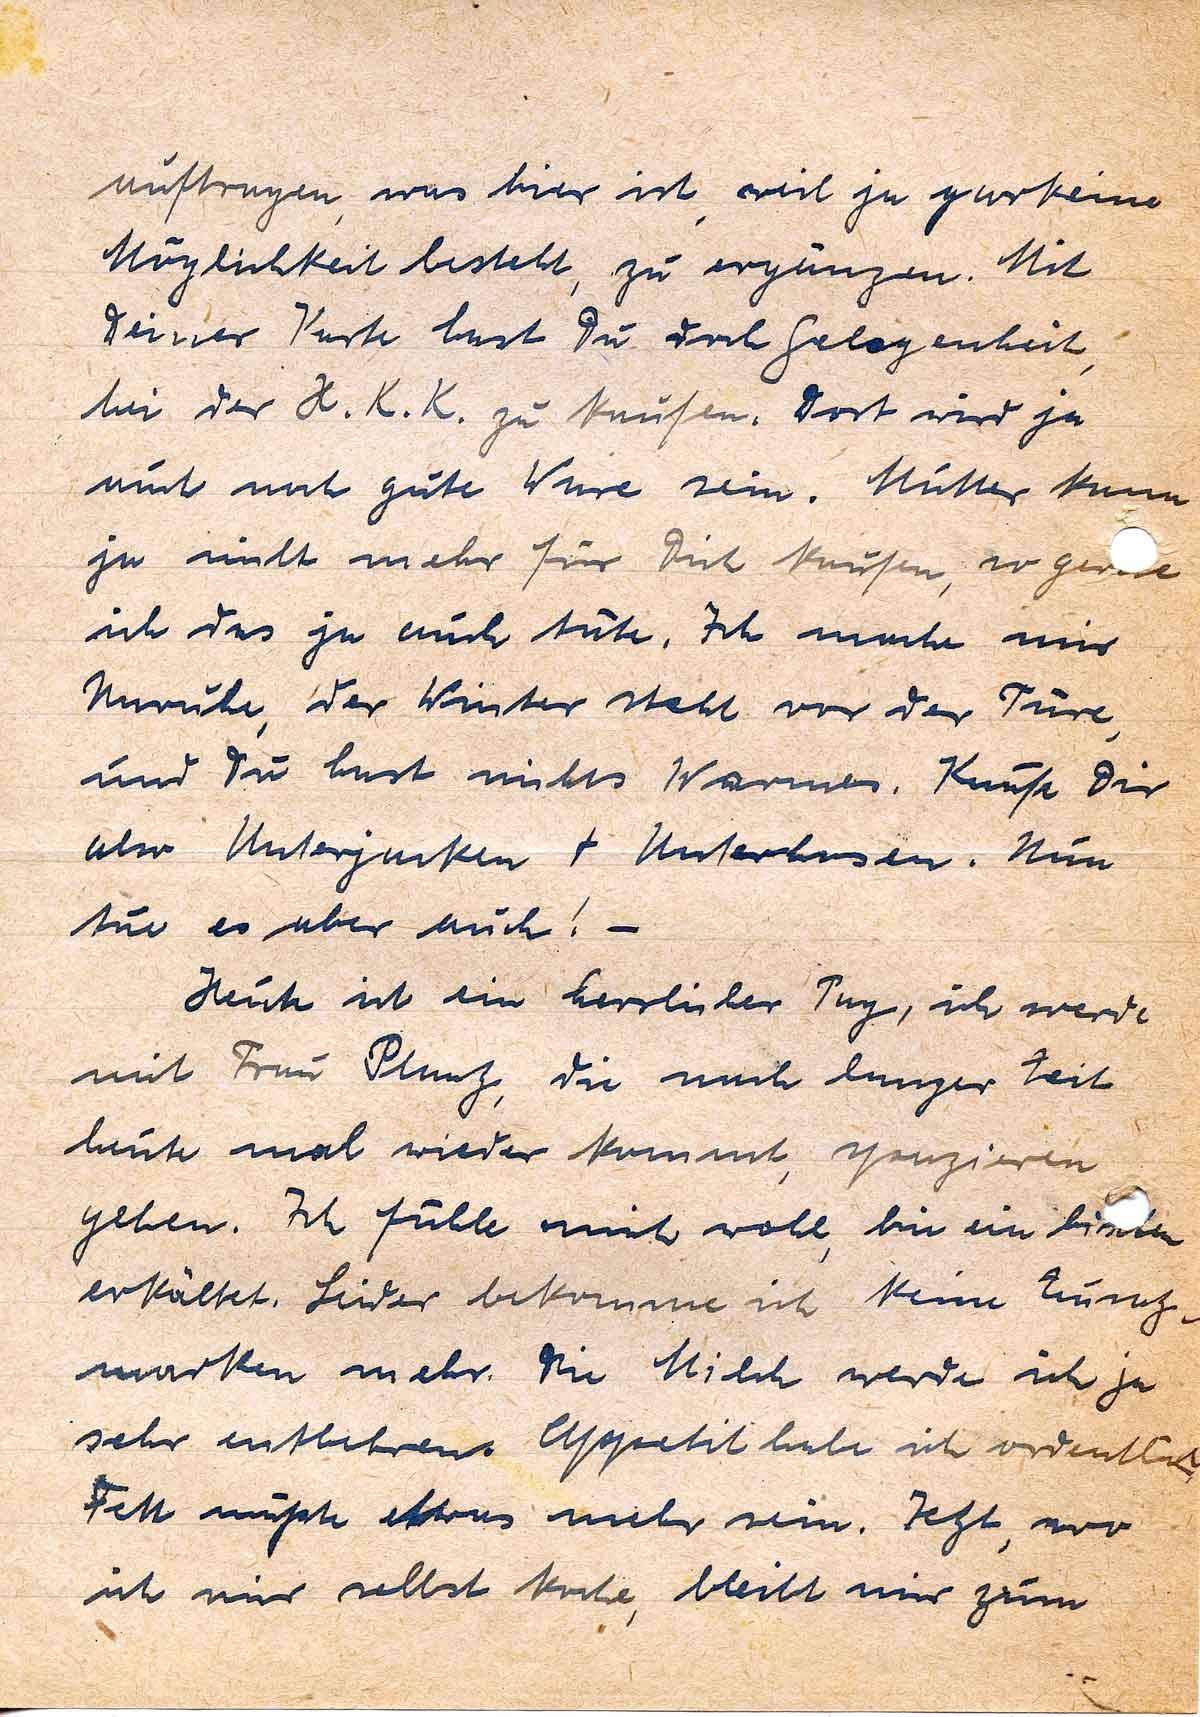 auftragen, was hier ist, weil ja garkeine
Möglichkeit besteht, zu ergänzen. Mit
Deiner Karte hast Du doch Gelegenheit,
bei der H.K.K. zu kaufen. Dort wird ja
auch noch gute Ware sein. Mutter kann
ja nicht mehr für Dich kaufen, so gerne
ich das ja auch täte. Ich mache mir
Unruhe, der Winter steht vor der Türe,
und Du hast nichts Warmes. Kaufe Dir
also Unterjacken + Unterhosen. Nun
tue es aber auch! –
Heute ist ein herrlicher Tag, ich werde
mit Frau Plantz, die nach langer Zeit
heute mal wieder kommt, spazieren
gehen. Ich fühle mich wohl, bin ein bischen
erkältet. Leider bekomme ich keine Zusatz-
marken mehr. Die Milch werde ich ja
sehr entbehren. Appetit habe ich ordentlich,
Fett müßte etwas mehr sein. Jetzt, wo
ich mir selbst koche, bleibt mir zum